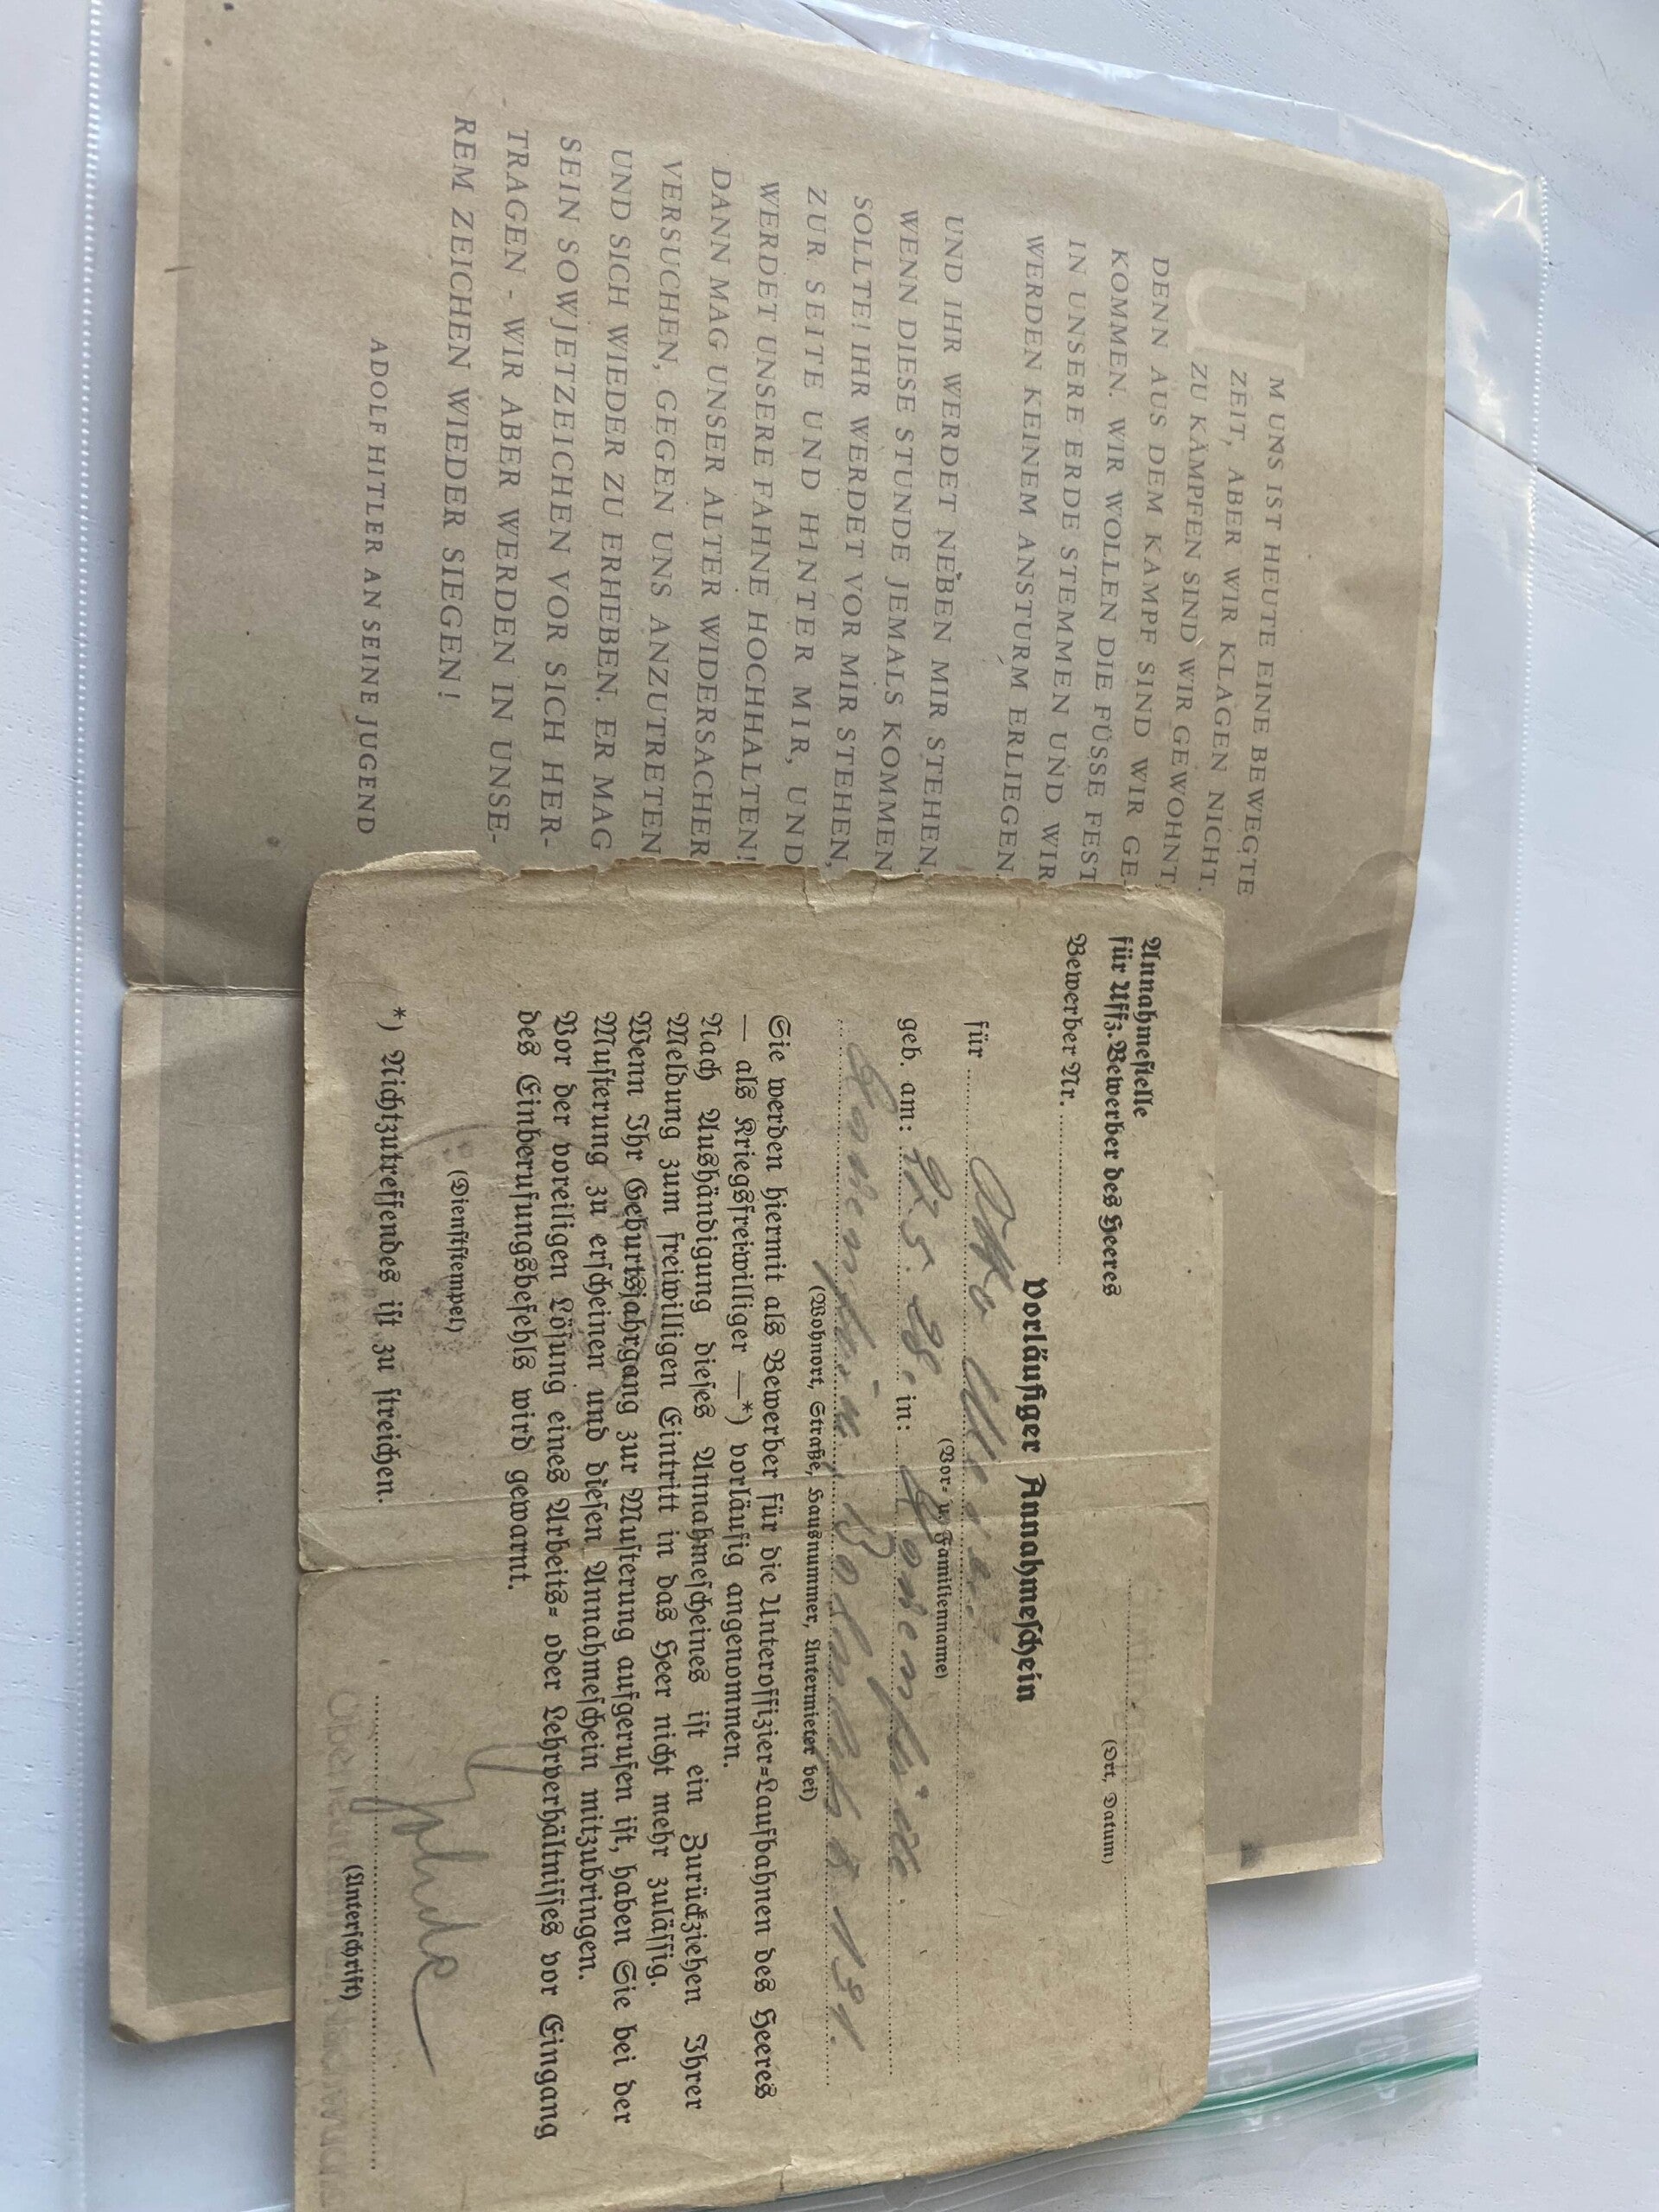 UM UNS IST HEUTE EINE BEWEGTE
ZEIT, ABER WIR KLAGEN NICHT.
ZU KÄMPFEN SIND WIR GEWOHNT,
DENN AUS DEM KAMPF SIND WIR GE-
KOMMEN. WIR WOLLEN DIE FÜSSE FEST
IN UNSERE ERDE STEMMEN UND WIR
WERDEN KEINEM ANSTURM ERLIEGEN.
UND IHR WERDET NEBEN MIR STEHEN,
WENN DIESE STUNDE JEMALS KOMMEN
SOLLTE! IHR WERDET VOR MIR STEHEN,
ZUR SEITE UND HINTER MIR, UND
WERDET UNSERE FAHNE HOCHHALTEN!
DANN MAG UNSER ALTER WIDERSACHER
VERSUCHEN, GEGEN UNS ANZUTRETEN
UND SICH WIEDER ZU ERHEBEN. ER MAG
SEIN SOWJETZEICHEN VOR SICH HER-
TRAGEN - WIR ABER WERDEN IN UNSE-
REM ZEICHEN WIEDER SIEGEN!
ADOLF HITLER AN SEINE JUGEND
Annahmestelle
für Uffz.-Bewerber des Heeres
Bewerber Nr.
(Ort, Datum)
Vorläufiger Annahmeschein
für Otto
(Vor- u. Familienname)
geb. am: 28. in:
(Wohnort, Straße, Hausnummer, Untermieter bei)
Sie werden hiermit als Bewerber für die Unteroffizier-Laufbahnen des Heeres
— als Kriegsfreiwilliger —*) vorläufig angenommen.
Nach Aushändigung dieses Annahmescheines ist ein Zurückziehen Ihrer
Meldung zum freiwilligen Eintritt in das Heer nicht mehr zulässig.
Wenn Ihr Geburtsjahrgang zur Musterung aufgerufen ist, haben Sie bei der
Musterung zu erscheinen und diesen Annahmeschein mitzubringen.
Vor der voreiligen Lösung eines Arbeits- oder Lehrverhältnisses vor Eingang
des Einberufungsbefehls wird gewarnt.
(Dienststempel)
(Unterschrift)
*) Nichtzutreffendes ist zu streichen.